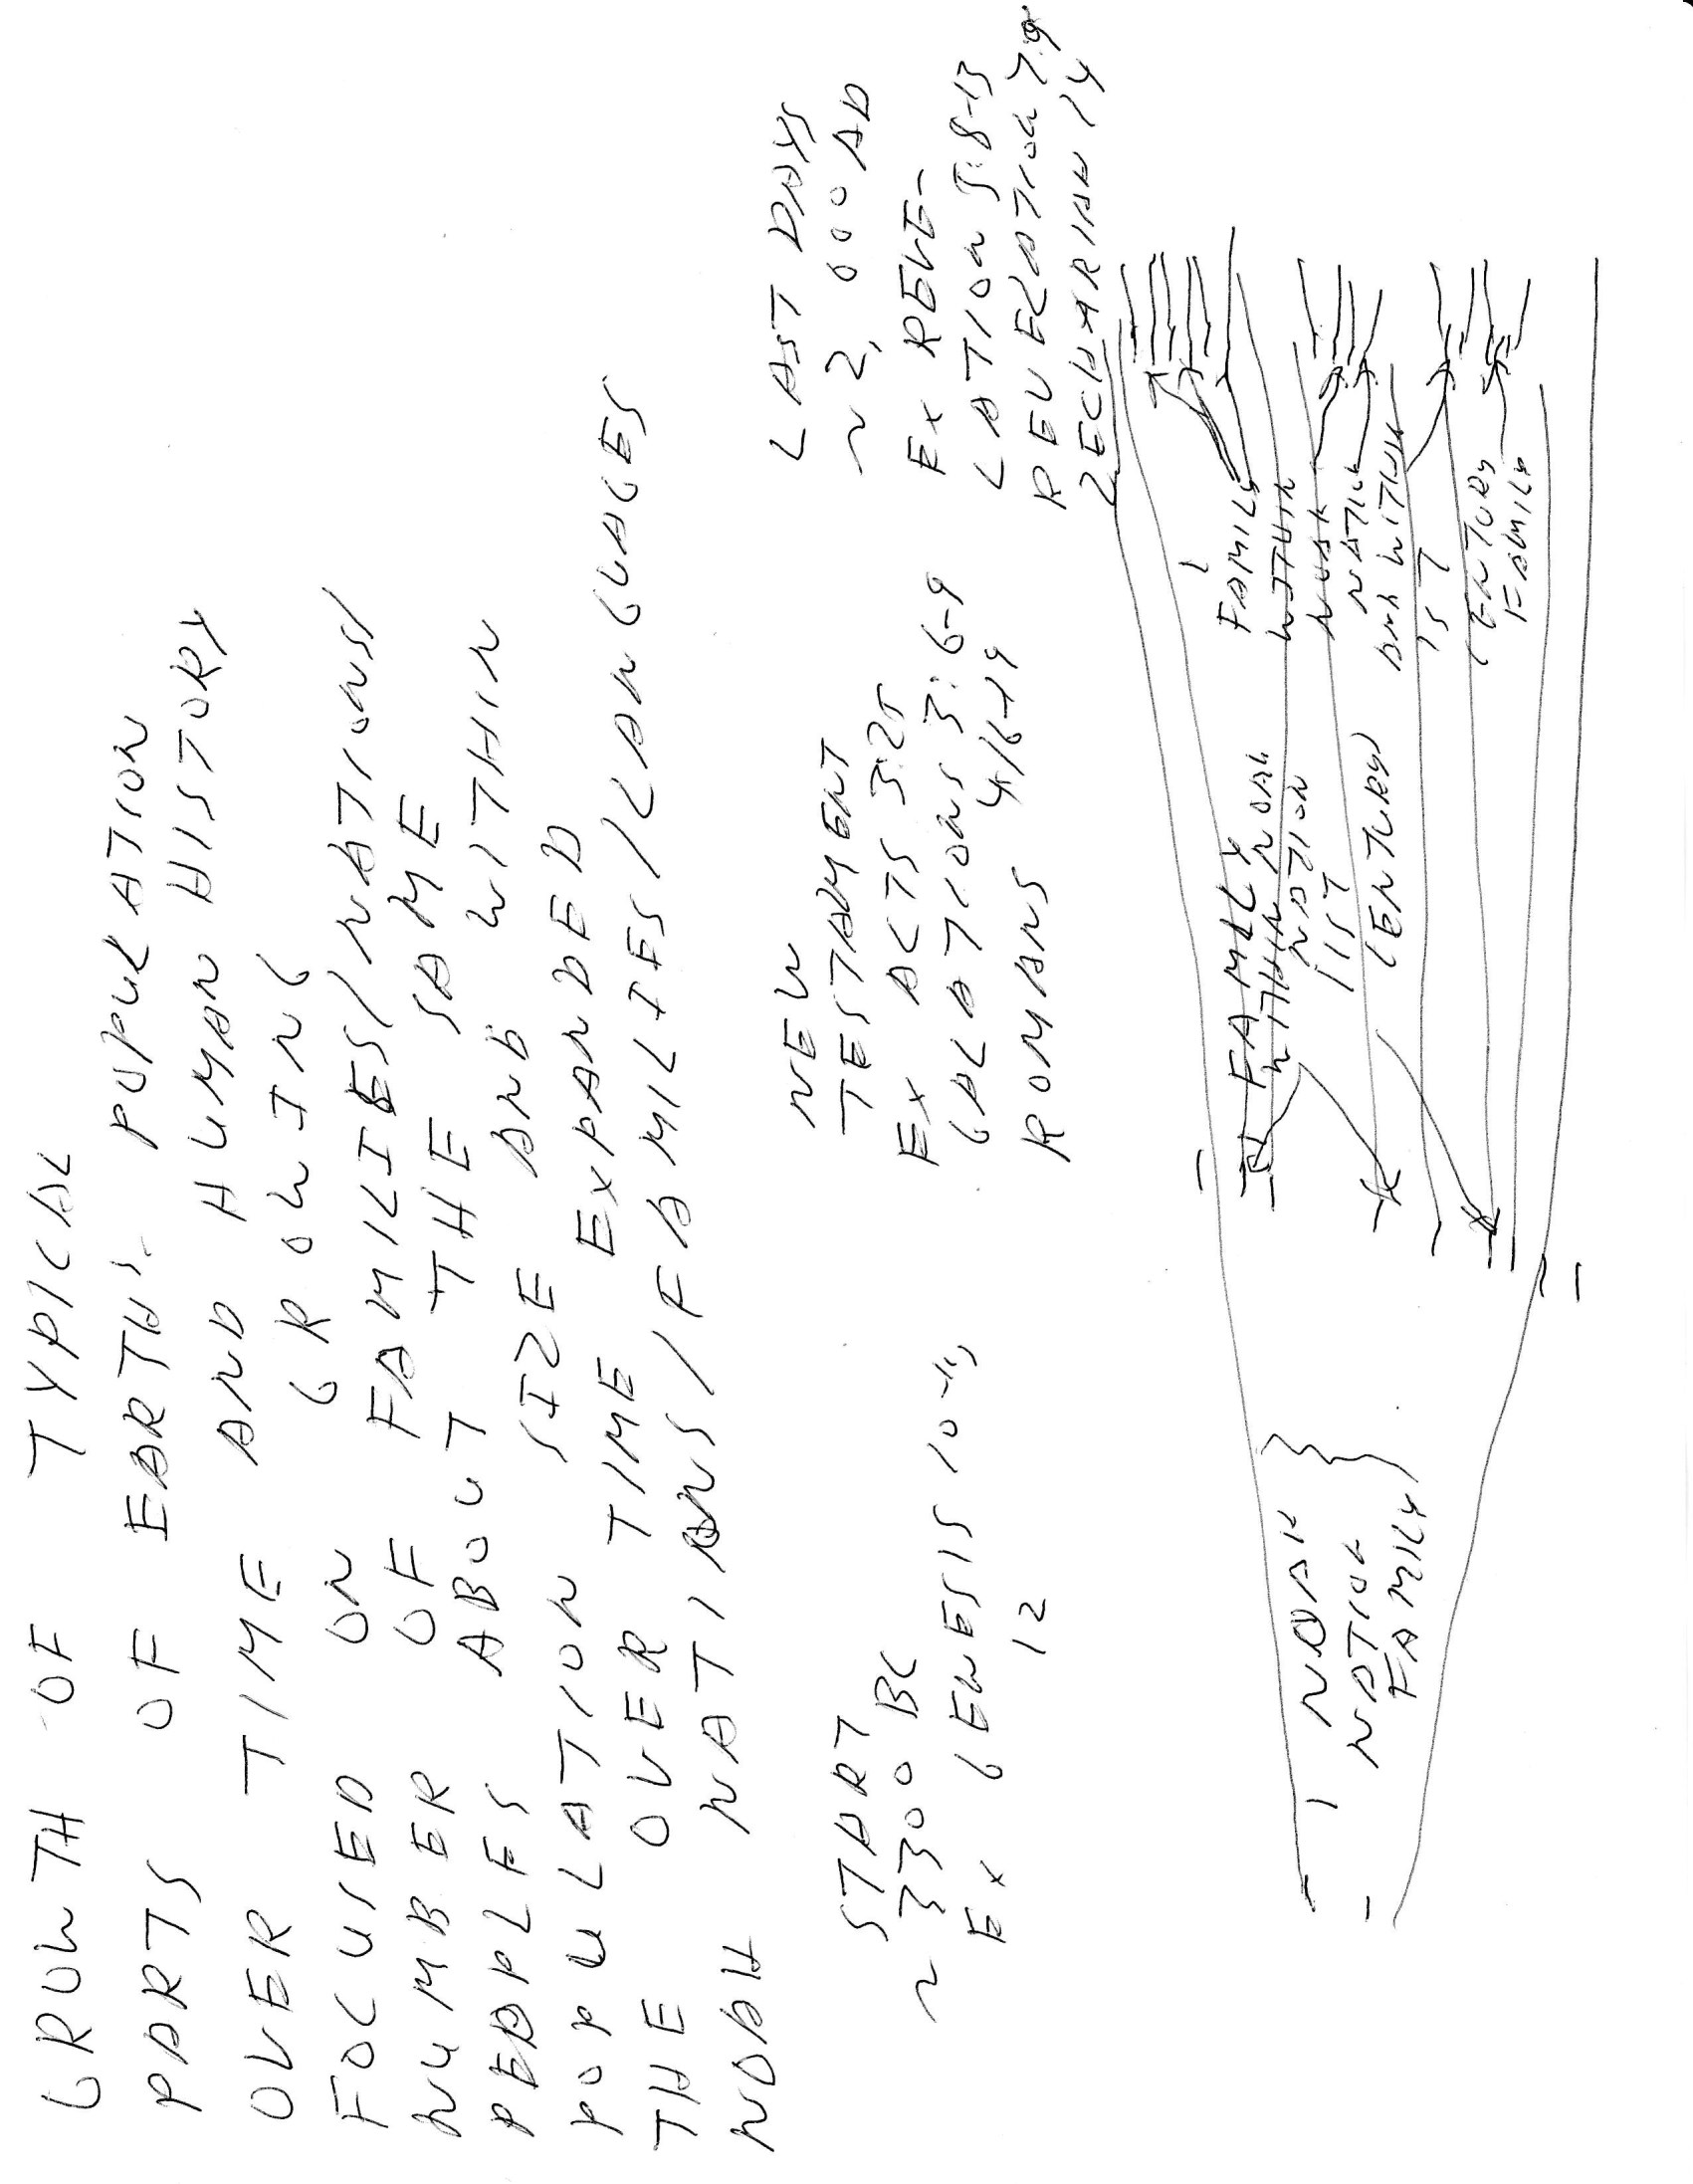 GROWTH OF TYPICAL
PARTS OF EARTH'S POPULATION
OVER TIME AND HUMAN HISTORY
FOCUSED ON GROWING
NUMBER OF FAMILIES/NATIONS/
PEOPLES OF ABOUT THE SAME
POPULATION SIZE AND WITHIN
THE OVER TIME EXPANDED
NOAH NATIONS/FAMILIES/LANGUAGES
START
~ 3300 BC
EX GENESIS 10-11,
12
NEW
TESTAMENT
EX ACTS 3:25
GALATIONS 3:6-9
ROMANS 4:16-19
LAST DAYS
~ 2,000 AD
EX REVE-
LATION 5:8-13
REVELATION 7:9
ZECHARIAH 14
1 NOAH
NATION
FAMILY
FAMILY
WITHIN NOAH
NATION
1ST
CENTURY
1
FAMILY
WITHIN
NOAH
NATION
AND WITHIN
1ST
CENTURY
FAMILY